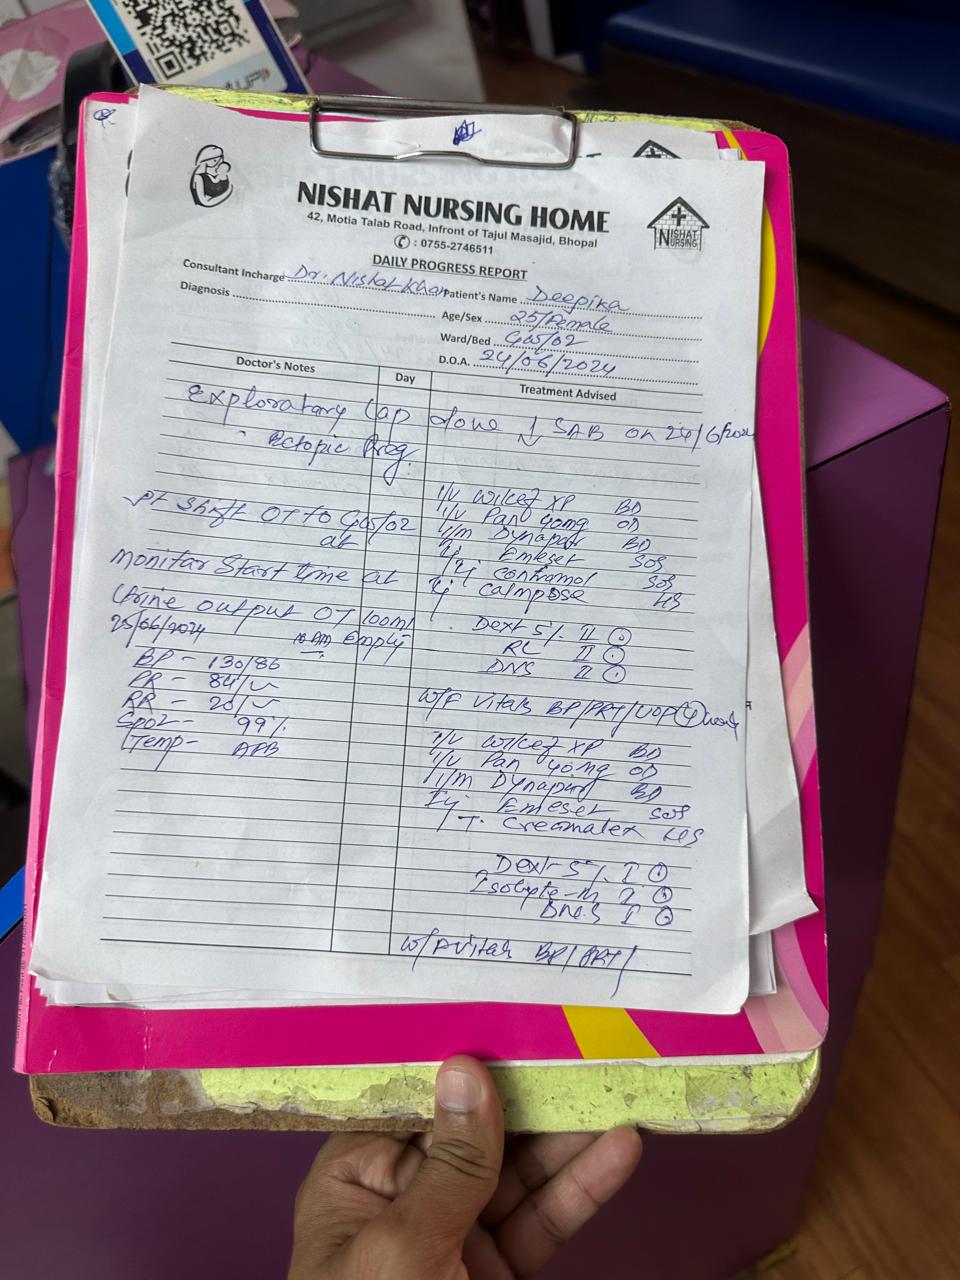 UPI
NISHAT NURSING HOME
42, Motia Talab Road, Infront of Tajul Masajid, Bhopal
✆ : 0755-2746511
NISHAT
NURSING
DAILY PROGRESS REPORT
Consultant Incharge Dr. Nishat Khan Patient's Name Deepika
Diagnosis
Age/Sex 25/Female
Ward/Bed GW/02
D.O.A. 24/06/2024
Doctor's Notes Day Treatment Advised
Exploratary Lap done SAB on 24/6/202
Ectopic Preg.
I/V Wilcef XP BD
I/V Pan 40mg OD
Pt Shift OT to GW/02 I/M Dynapar BD
at Emeset SOS
Contramol SOS
Monitar Start time at Calmpose HS
Urine output OT 100ml Dext 5%. II
25/06/2024 Empty RL II
DNS II
BP - 130/86
PR - 84/
RR - 20/ W/F Vitals BP/PRT/UOP 4 hourly
SpO2 - 99%
Temp - AFB I/V Wilcef XP BD
I/V Pan 40mg OD
I/M Dynapar BD
Inj Emeset SOS
T. Cremalex HS
Dext 5%. I
Isolyte-M I
DNS I
W/F Vitals BP/PRT/